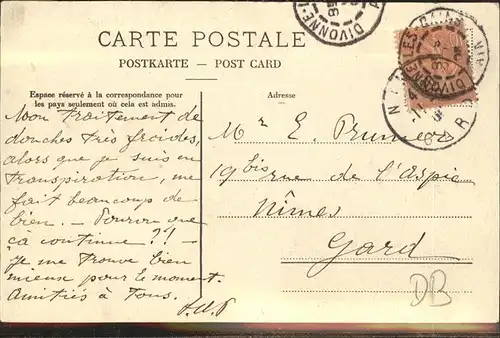 CARTE POSTALE
POSTKARTE — POST CARD
Espace réservé à la correspondance pour
les pays seulement où cela est admis.
Adresse
Mon traitement de
douches très froides,
alors que je suis en
transpiration, me
fait beaucoup de
bien. — Pourvu que
çà continue ?!! —
Je me trouve bien
mieux pour le moment.
Amitiés à Tous.
Mr E. Pruneyr
19 bis rue de l'Aspic
Nîmes
Gard
DB
DIVONNE-LES-BAINS
DIVONNE-L